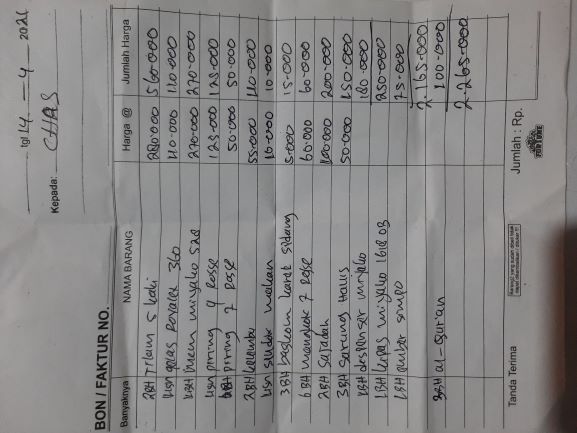 tgl 14 - 4 - 2021
Kepada: CHAS
BON / FAKTUR NO.
Banyaknya NAMA BARANG Harga @ Jumlah Harga
2BH Tilam 5 kaki 280.000 560.000
1LSN gelas 360 110.000 110.000
1BH miyako 528 270.000 270.000
1LSN piring 9 Rosse 125.000 125.000
piring 7 Rose 50.000 50.000
2BH kelambu 55.000 110.000
1LSN sendok makan 10.000 10.000
3BH baskom karet sidang 5.000 15.000
6BH mangkok 7 Rose 60.000 60.000
2BH Sajadah 100.000 200.000
3BH Sarung Halis 50.000 150.000
1BH dispenser miyako 180.000
1BH kipas miyako 1618 03 250.000
1BH simpo 75.000
2.165.000
3BH al-Qur'an 100.000
2.265.000
Tanda Terima Jumlah : Rp.